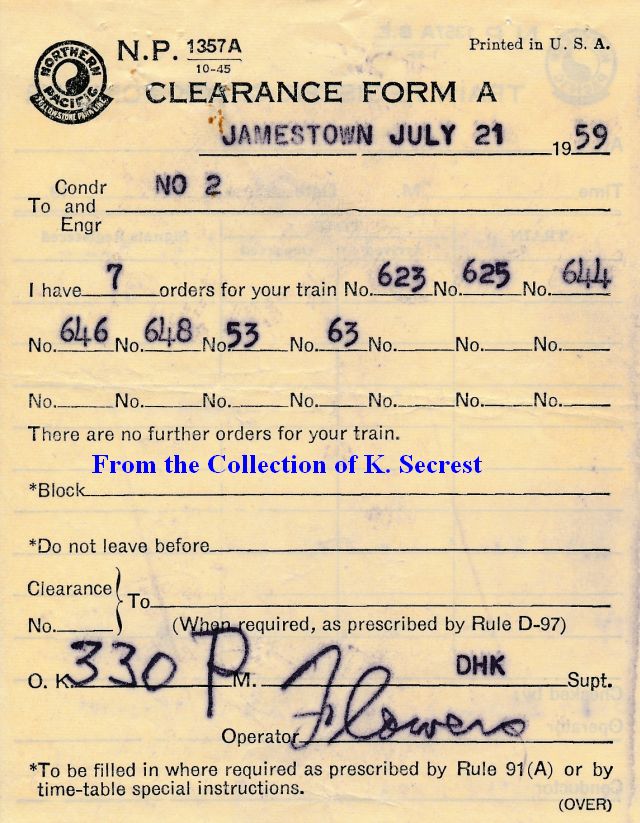 NORTHERN PACIFIC YELLOWSTONE PARK LINE
N.P. 1357A
10-45
Printed in U. S. A.
CLEARANCE FORM A
JAMESTOWN JULY 21 1959
Condr
To and NO 2
Engr
I have 7 orders for your train No. 623 No. 625 No. 644
No. 646 No. 648 No. 53 No. 63 No. No. No.
No. No. No. No. No. No. No.
There are no further orders for your train.
From the Collection of K. Secrest
*Block
*Do not leave before
Clearance
To
No. (When required, as prescribed by Rule D-97)
O. K. 330 P M. DHK Supt.
Operator Flowers
*To be filled in where required as prescribed by Rule 91(A) or by
time-table special instructions.
(OVER)